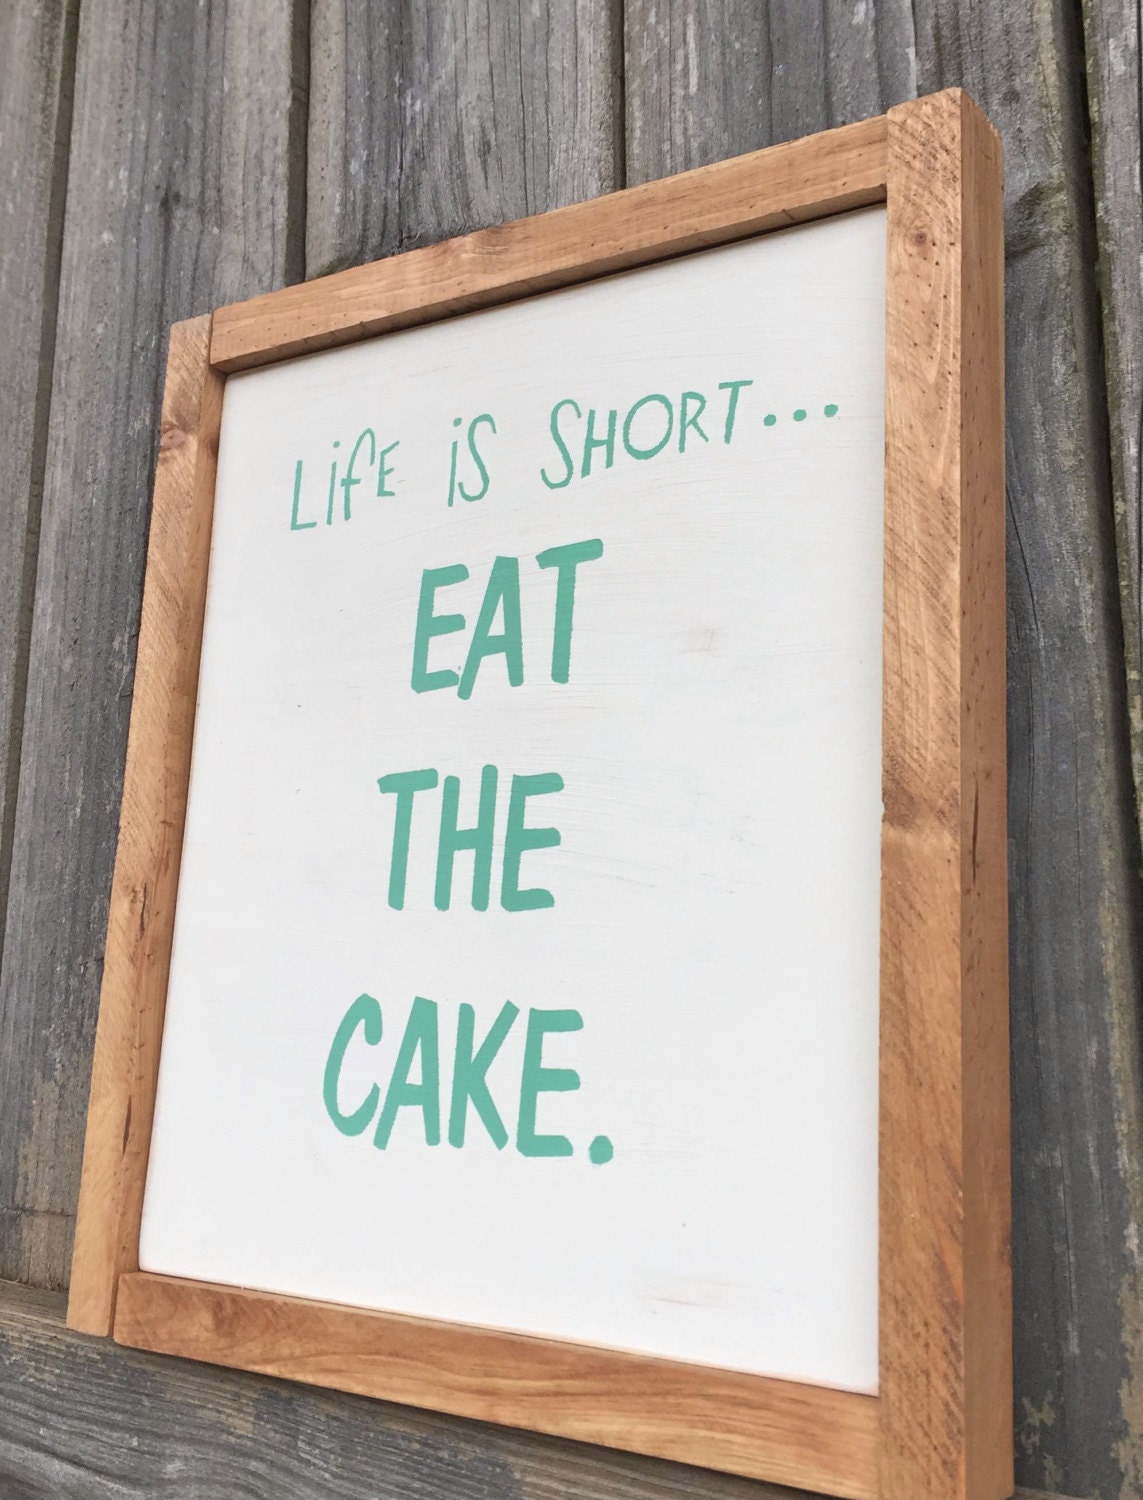 LiFE iS SHORT...
EAT
THE
CAKE.